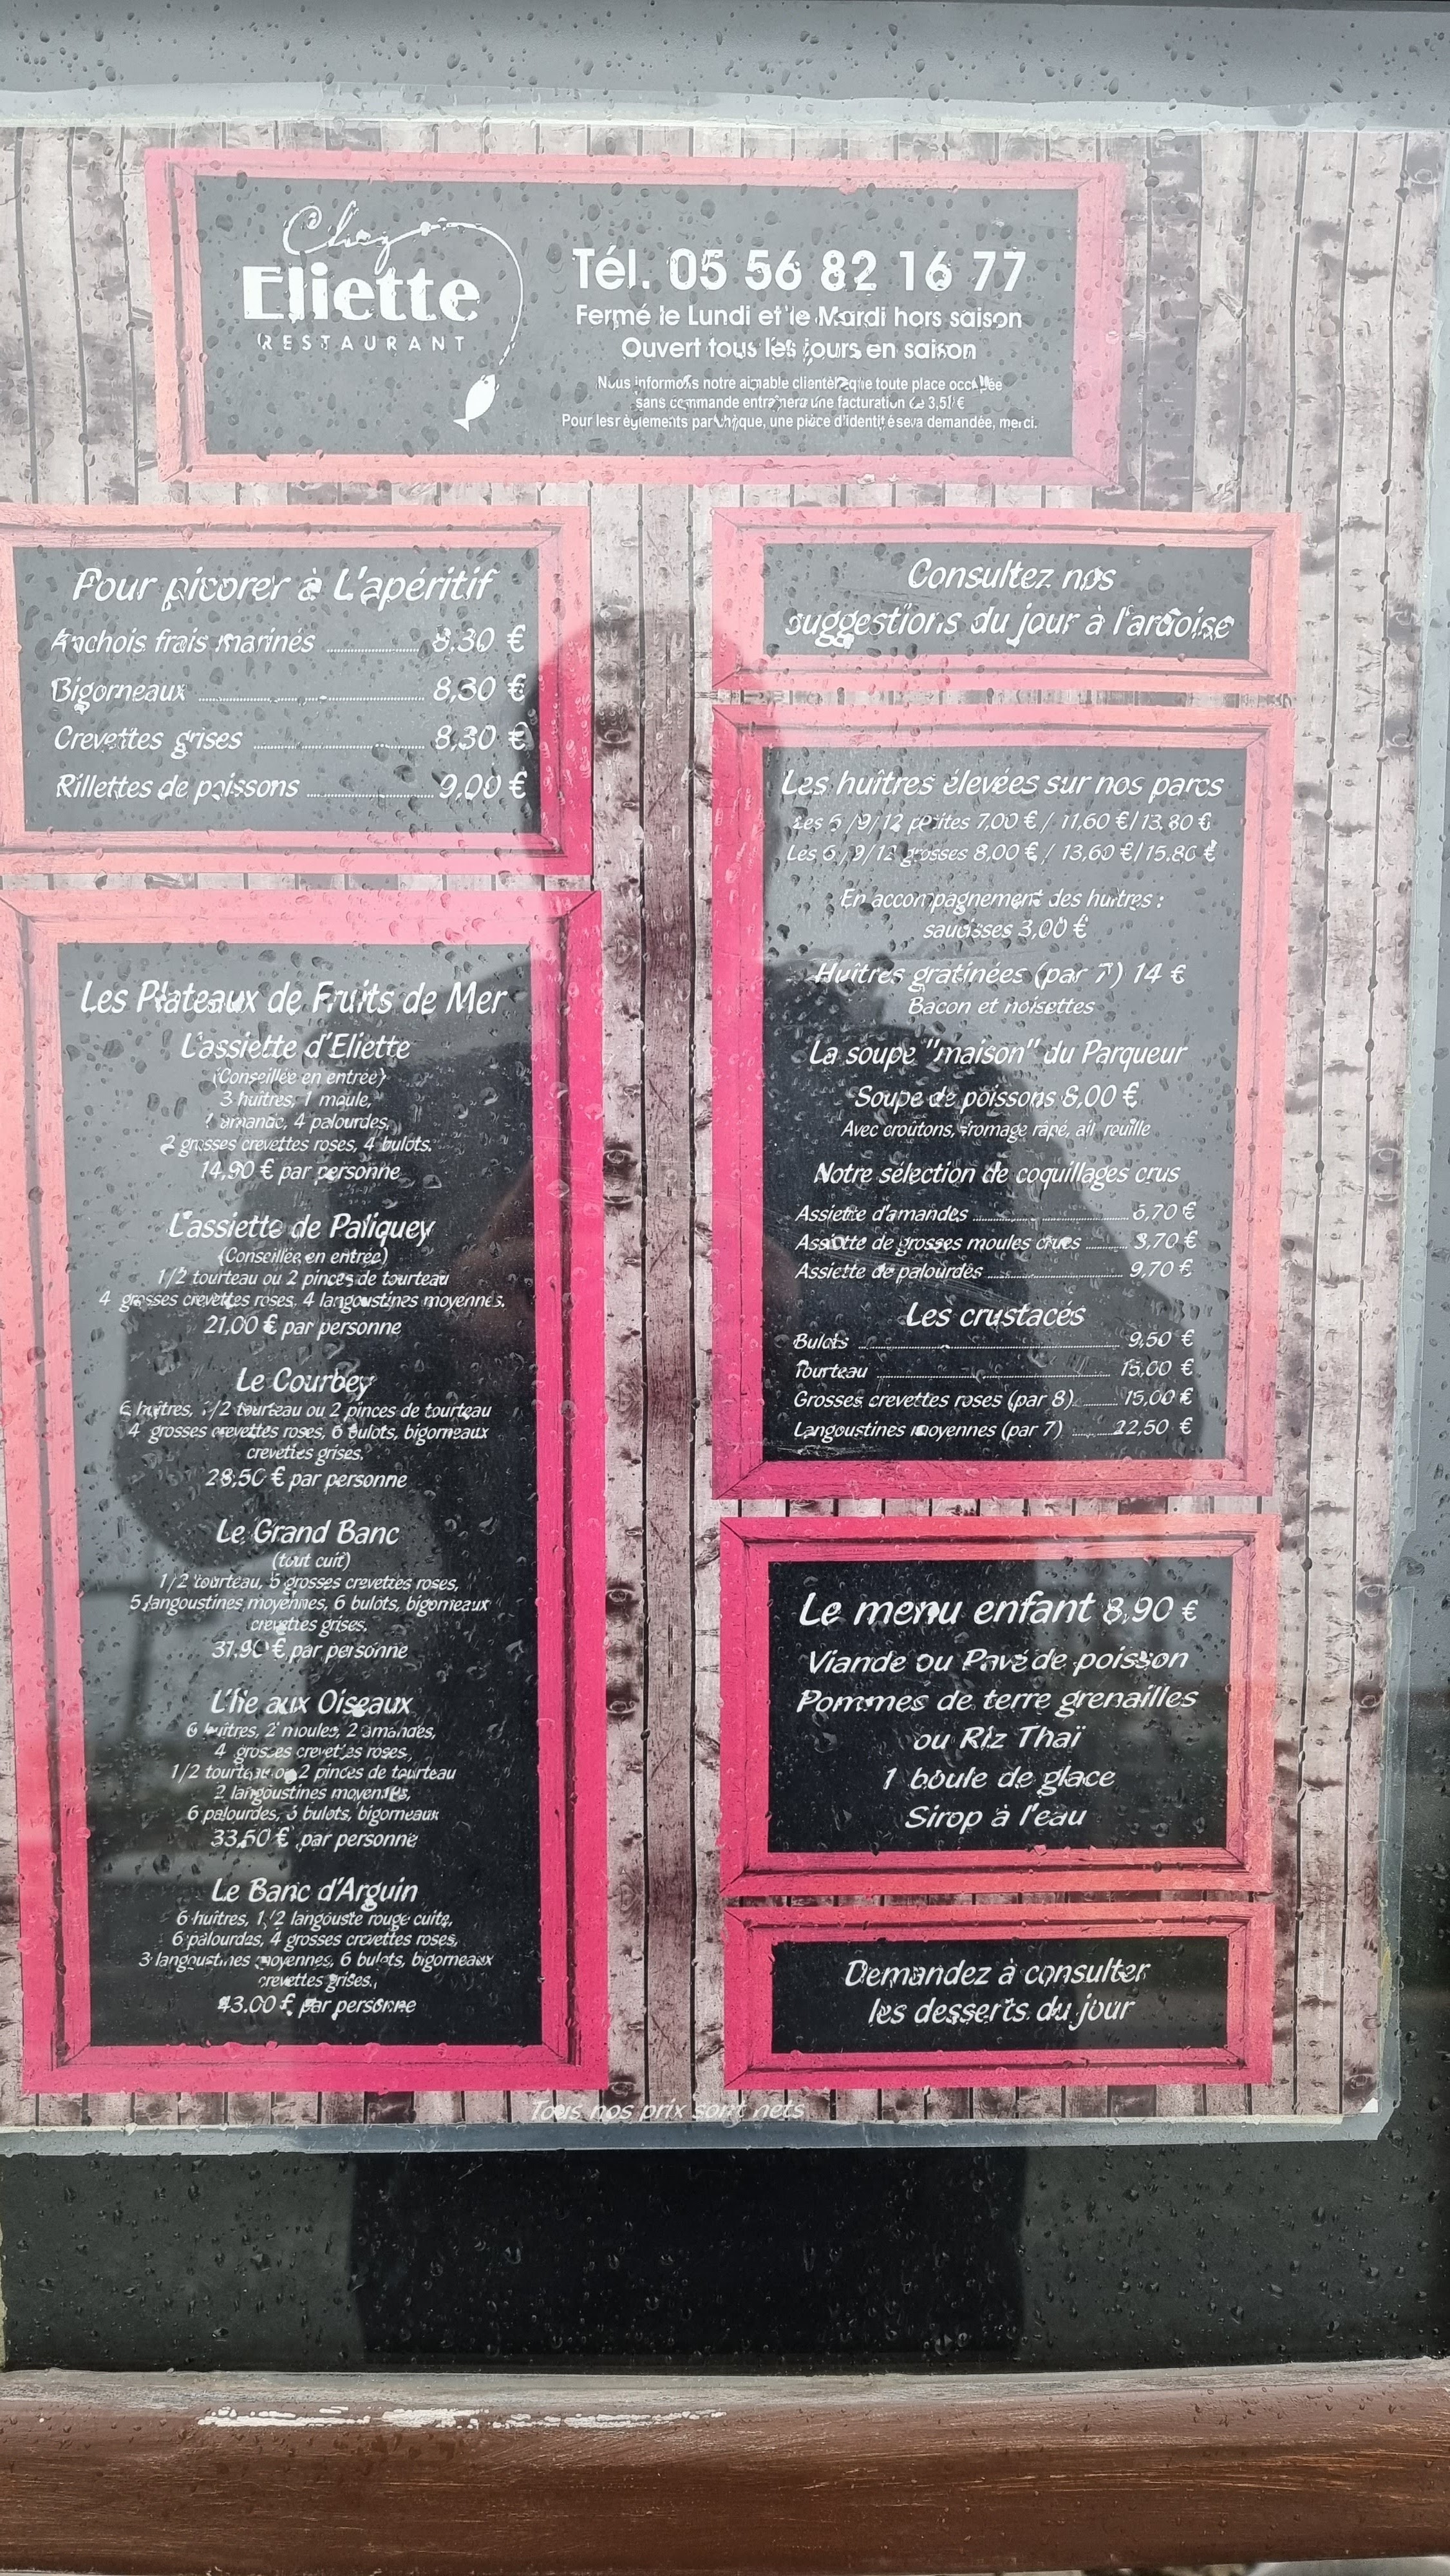 Chez
Eliette
RESTAURANT
Tél. 05 56 82 16 77
Fermé le Lundi et le Mardi hors saison
Ouvert tous les jours en saison
Nous informons notre aimable clientèle que toute place occupée
sans commande entraînera une facturation de 3,51 €
Pour les règlements par chèque, une pièce d'identité sera demandée, merci.
Pour picorer à L'apéritif
Anchois frais marinés 8,30 €
Bigorneaux 8,30 €
Crevettes grises 8,30 €
Rillettes de poissons 9,00 €
Les Plateaux de Fruits de Mer
L'assiette d'Eliette
(Conseillée en entrée)
3 huîtres, 1 moule,
1 amande, 4 palourdes,
2 grosses crevettes roses, 4 bulots.
14,90 € par personne
L'assiette de Paliquey
(Conseillée en entrée)
1/2 tourteau ou 2 pinces de tourteau
4 grosses crevettes roses, 4 langoustines moyennes.
21,00 € par personne
Le Courbey
6 huîtres, 1/2 tourteau ou 2 pinces de tourteau
4 grosses crevettes roses, 6 bulots, bigorneaux
crevettes grises.
28,50 € par personne
Le Grand Banc
(tout cuit)
1/2 tourteau, 5 grosses crevettes roses,
5 langoustines moyennes, 6 bulots, bigorneaux
crevettes grises.
31,90 € par personne
L'Ile aux Oiseaux
6 huîtres, 2 moules, 2 amandes,
4 grosses crevettes roses,
1/2 tourteau ou 2 pinces de tourteau
2 langoustines moyennes,
6 palourdes, bulots, bigorneaux
33,50 € par personne
Le Banc d'Arguin
6 huîtres, 1/2 langouste rouge cuite,
6 palourdes, 4 grosses crevettes roses,
3 langoustines moyennes, 6 bulots, bigorneaux
crevettes grises.
43.00 € par personne
Consultez nos
suggestions du jour à l'ardoise
Les huîtres élevées sur nos parcs
Les 6 /9/12 petites 7,00 € / 11,60 € / 13.80 €
Les 6 / 9/12 grosses 8,00 € / 13,60 € / 15.80 €
En accompagnement des huîtres :
saucisses 3,00 €
Huîtres gratinées (par 7) 14 €
Bacon et noisettes
La soupe "maison" du Parqueur
Soupe de poissons 8,00 €
Avec croûtons, fromage râpé, ail, rouille
Notre sélection de coquillages crus
Assiette d'amandes €
Assiette de grosses moules crues €
Assiette de palourdes 9,70 €
Les crustacés
Bulots 9,50 €
Tourteau 15,00 €
Grosses crevettes roses (par 8) 15,00 €
Langoustines moyennes (par 7) 22,50 €
Le menu enfant 8,90 €
Viande ou Pavé de poisson
Pommes de terre grenailles
ou Riz Thaï
1 boule de glace
Sirop à l'eau
Demandez à consulter
les desserts du jour
Tous nos prix sont nets